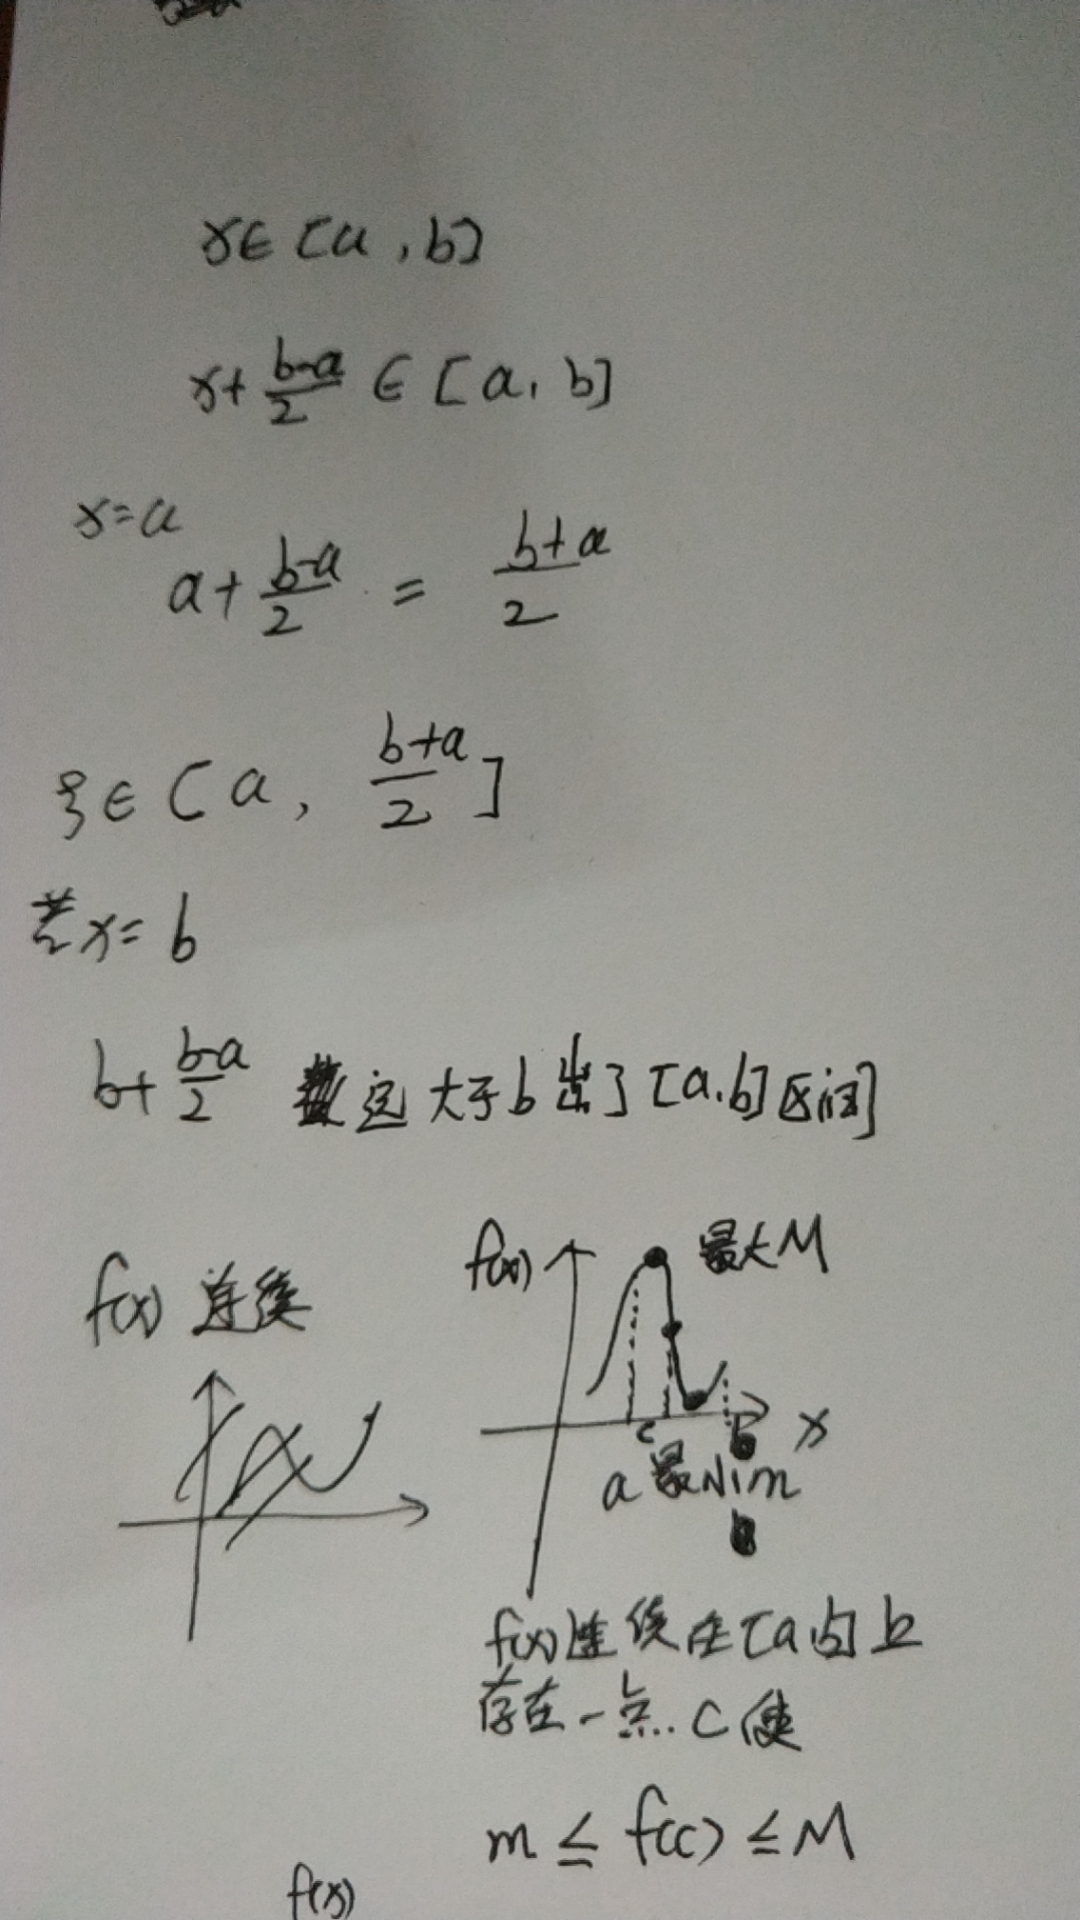 x∈[a,b]
x+\frac{b-a}{2}∈[a,b]
x=a
a+\frac{b-a}{2}=\frac{b+a}{2}
ξ∈[a,\frac{b+a}{2}]
若x=b
b+\frac{b-a}{2} 远大于b出了[a.b]区间
f(x)连续
f(x) 最大M
c b x
a 最小m
f(x)连续在[a,b]上
存在一点..C使
m≤f(c)≤M
f(x)